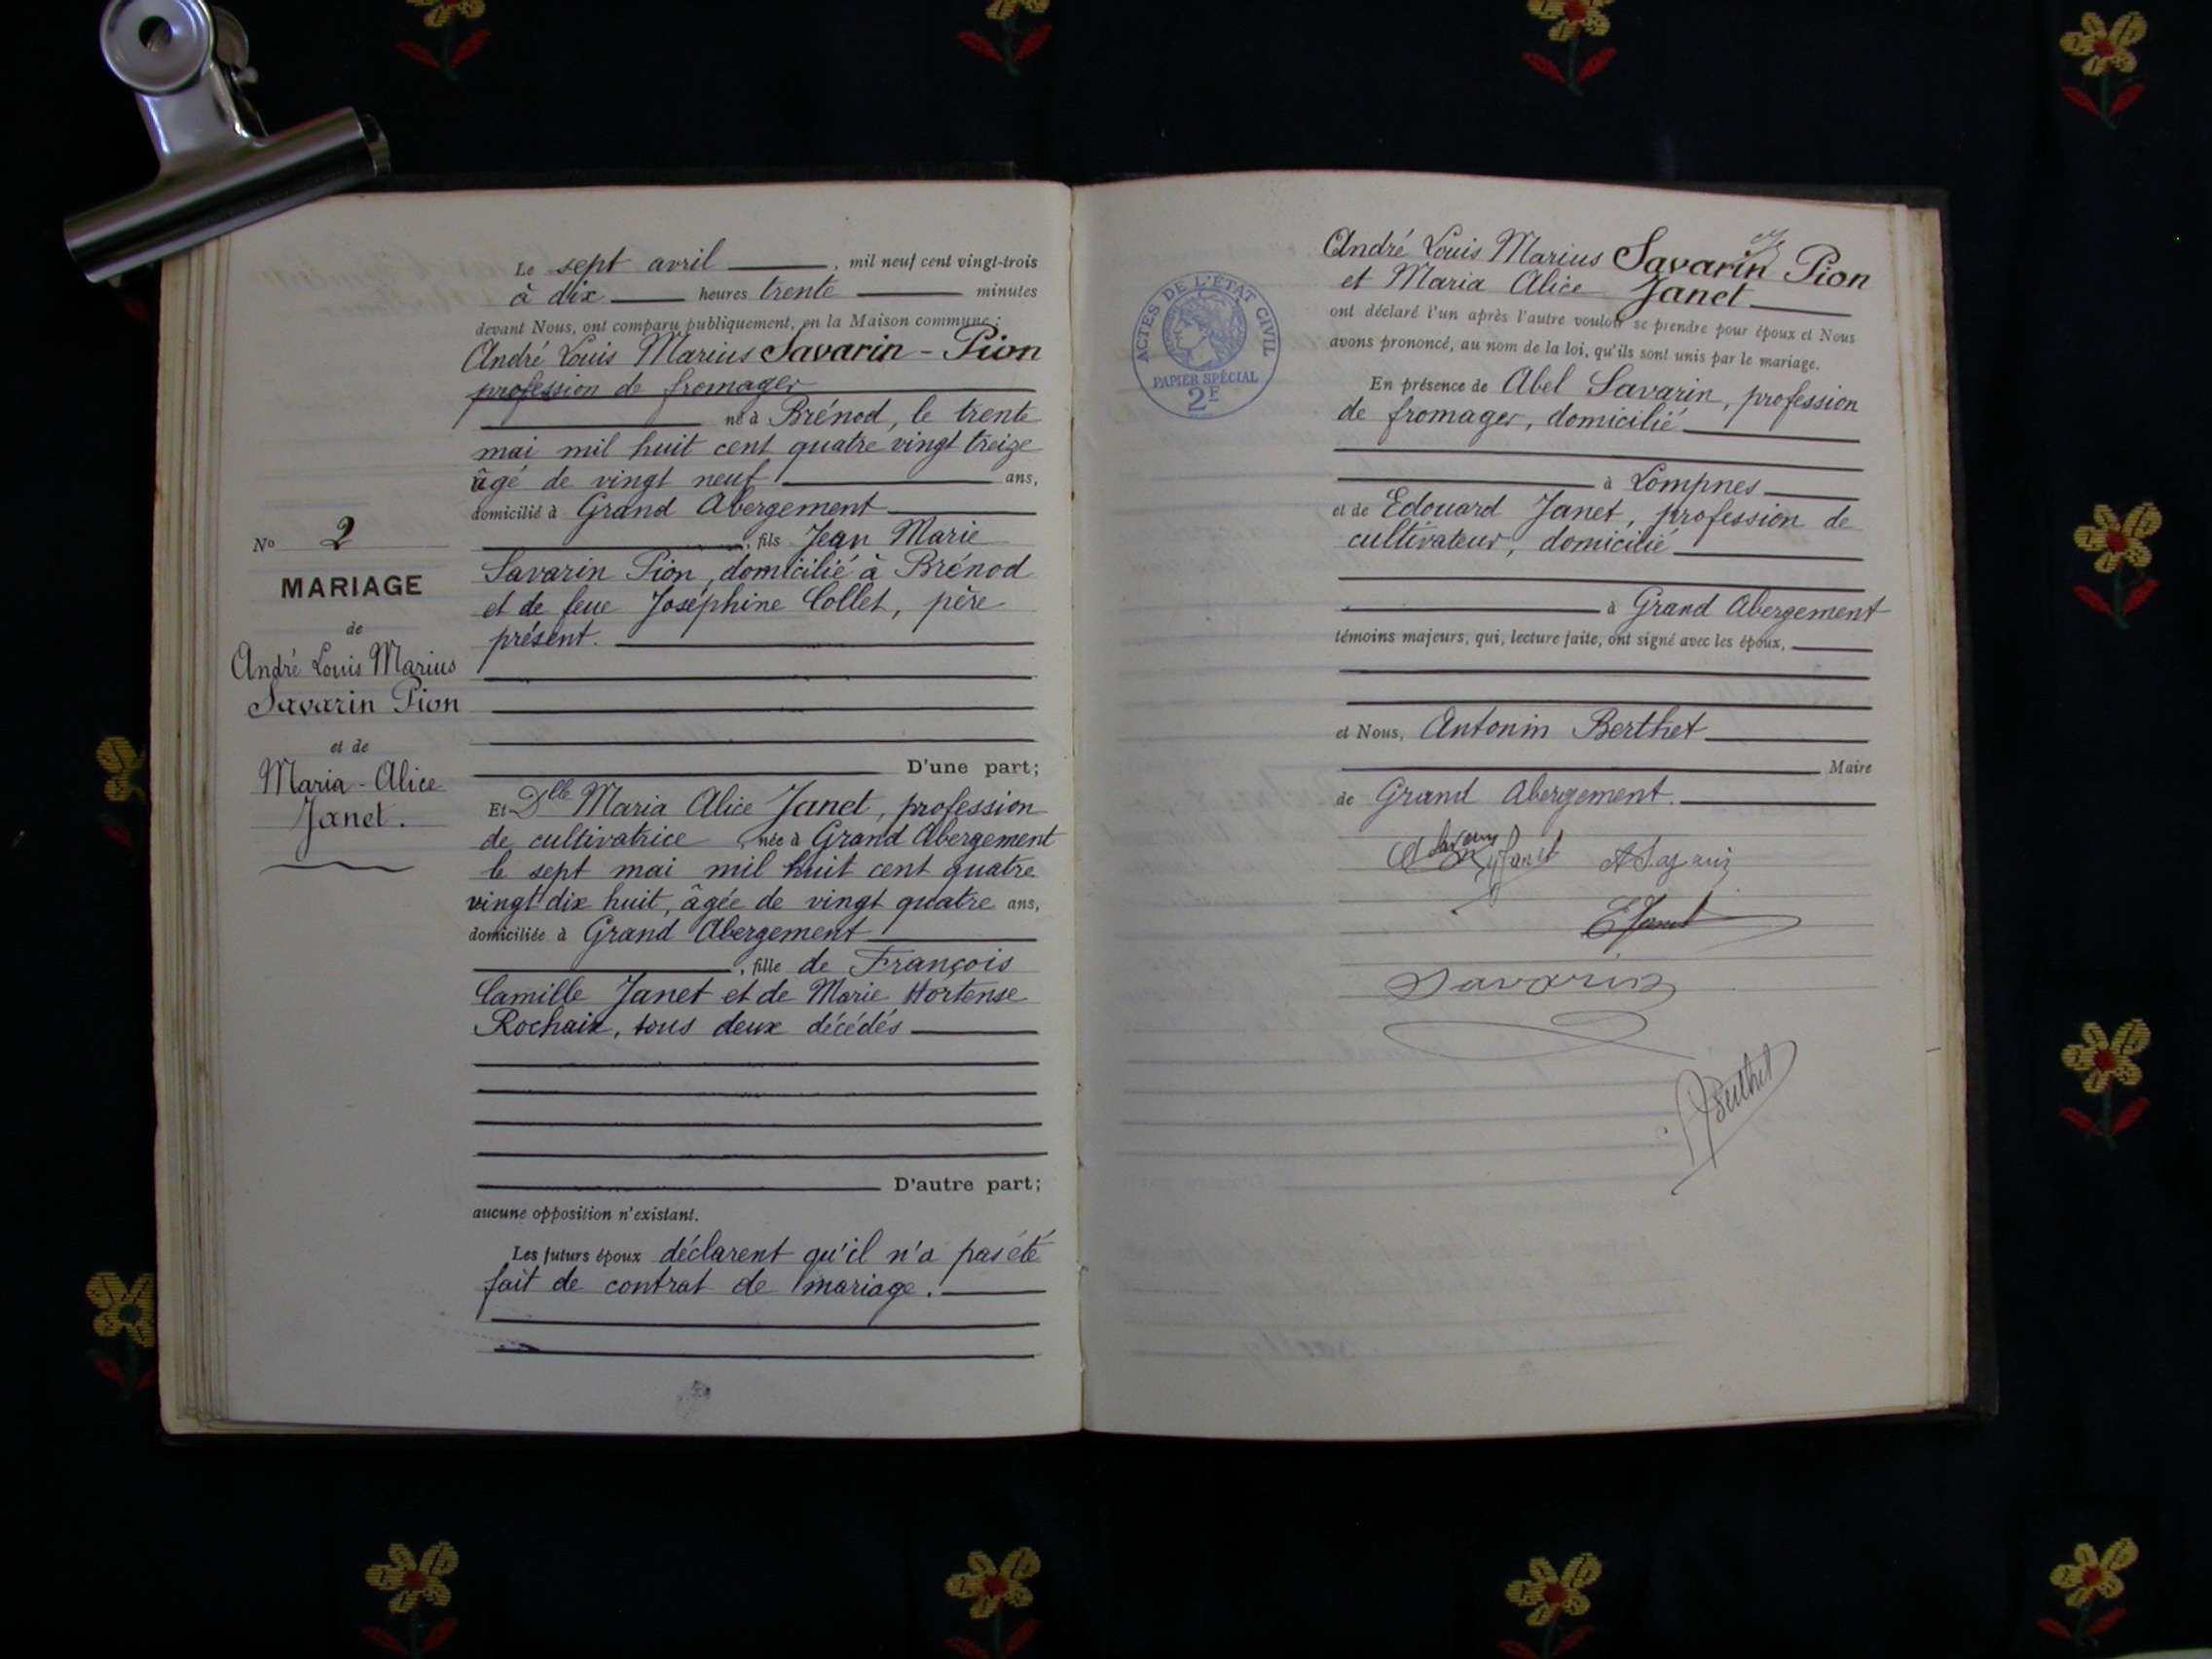 Le sept avril, mil neuf cent vingt-trois
à dix heures trente minutes
devant Nous, ont comparu publiquement, en la Maison commune :
André Louis Marius Savarin - Pion
profession de fromager
né à Brénod, le trente
mai mil huit cent quatre vingt treize
âgé de vingt neuf ans,
domicilié à Grand Abergement
, fils Jean Marie
Savarin Pion, domicilié à Brénod
et de feue Joséphine Collet, père
présent.
D'une part;
Et Dlle Maria Alice Janet, profession
de cultivatrice née à Grand Abergement
le sept mai mil huit cent quatre
vingt dix huit, âgée de vingt quatre ans,
domiciliée à Grand Abergement
, fille de François
Camille Janet et de Marie Hortense
Rochaix, tous deux décédés
D'autre part;
aucune opposition n'existant.
Les futurs époux déclarent qu'il n'a pas été
fait de contrat de mariage.
No 2
MARIAGE
de
André Louis Marius
Savarin Pion
et de
Maria - Alice
Janet.
ACTES DE L'ÉTAT CIVIL
PAPIER SPÉCIAL
2F
André Louis Marius Savarin Pion
et Maria Alice Janet
ont déclaré l'un après l'autre vouloir se prendre pour époux et Nous
avons prononcé, au nom de la loi, qu'ils sont unis par le mariage.
En présence de Abel Savarin, profession
de fromager, domicilié
à Lompnes
et de Edouard Janet, profession de
cultivateur, domicilié
à Grand Abergement
témoins majeurs, qui, lecture faite, ont signé avec les époux,
et Nous, Antonin Berthet
Maire
de Grand Abergement.
Janet A Savarin
E Janet
Savarin
Berthet